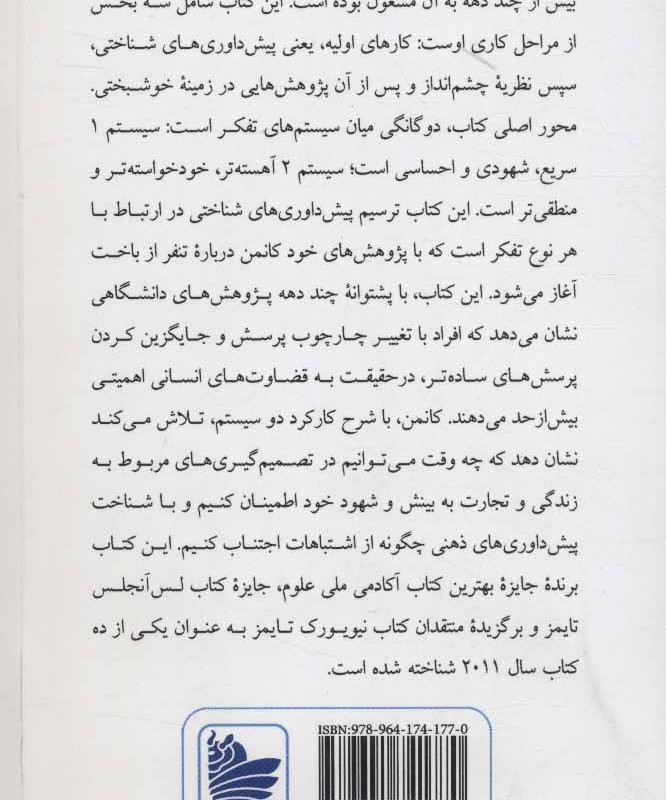 بیش از چند دهه به آن مشغول بوده است. این کتاب شامل سه بخش
از مراحل کاری اوست: کارهای اولیه، یعنی پیش‌داوری‌های شناختی،
سپس نظریهٔ چشم‌انداز و پس از آن پژوهش‌هایی در زمینهٔ خوشبختی.
محور اصلی کتاب، دوگانگی میان سیستم‌های تفکر است: سیستم ۱
سریع، شهودی و احساسی است؛ سیستم ۲ آهسته‌تر، خودخواسته‌تر و
منطقی‌تر است. این کتاب ترسیم پیش‌داوری‌های شناختی در ارتباط با
هر نوع تفکر است که با پژوهش‌های خود کانمن دربارهٔ تنفر از باخت
آغاز می‌شود. این کتاب، با پشتوانهٔ چند دهه پژوهش‌های دانشگاهی
نشان می‌دهد که افراد با تغییر چارچوب پرسش و جایگزین کردن
پرسش‌های ساده‌تر، درحقیقت به قضاوت‌های انسانی اهمیتی
بیش‌ازحد می‌دهند. کانمن، با شرح کارکرد دو سیستم، تلاش می‌کند
نشان دهد که چه وقت می‌توانیم در تصمیم‌گیری‌های مربوط به
زندگی و تجارت به بینش و شهود خود اطمینان کنیم و با شناخت
پیش‌داوری‌های ذهنی چگونه از اشتباهات اجتناب کنیم. این کتاب
برندهٔ جایزهٔ بهترین کتاب آکادمی ملی علوم، جایزهٔ کتاب لس‌آنجلس
تایمز و برگزیدهٔ منتقدان کتاب نیویورک تایمز به عنوان یکی از ده
کتاب سال ۲۰۱۱ شناخته شده است.
ISBN:978-964-174-177-0